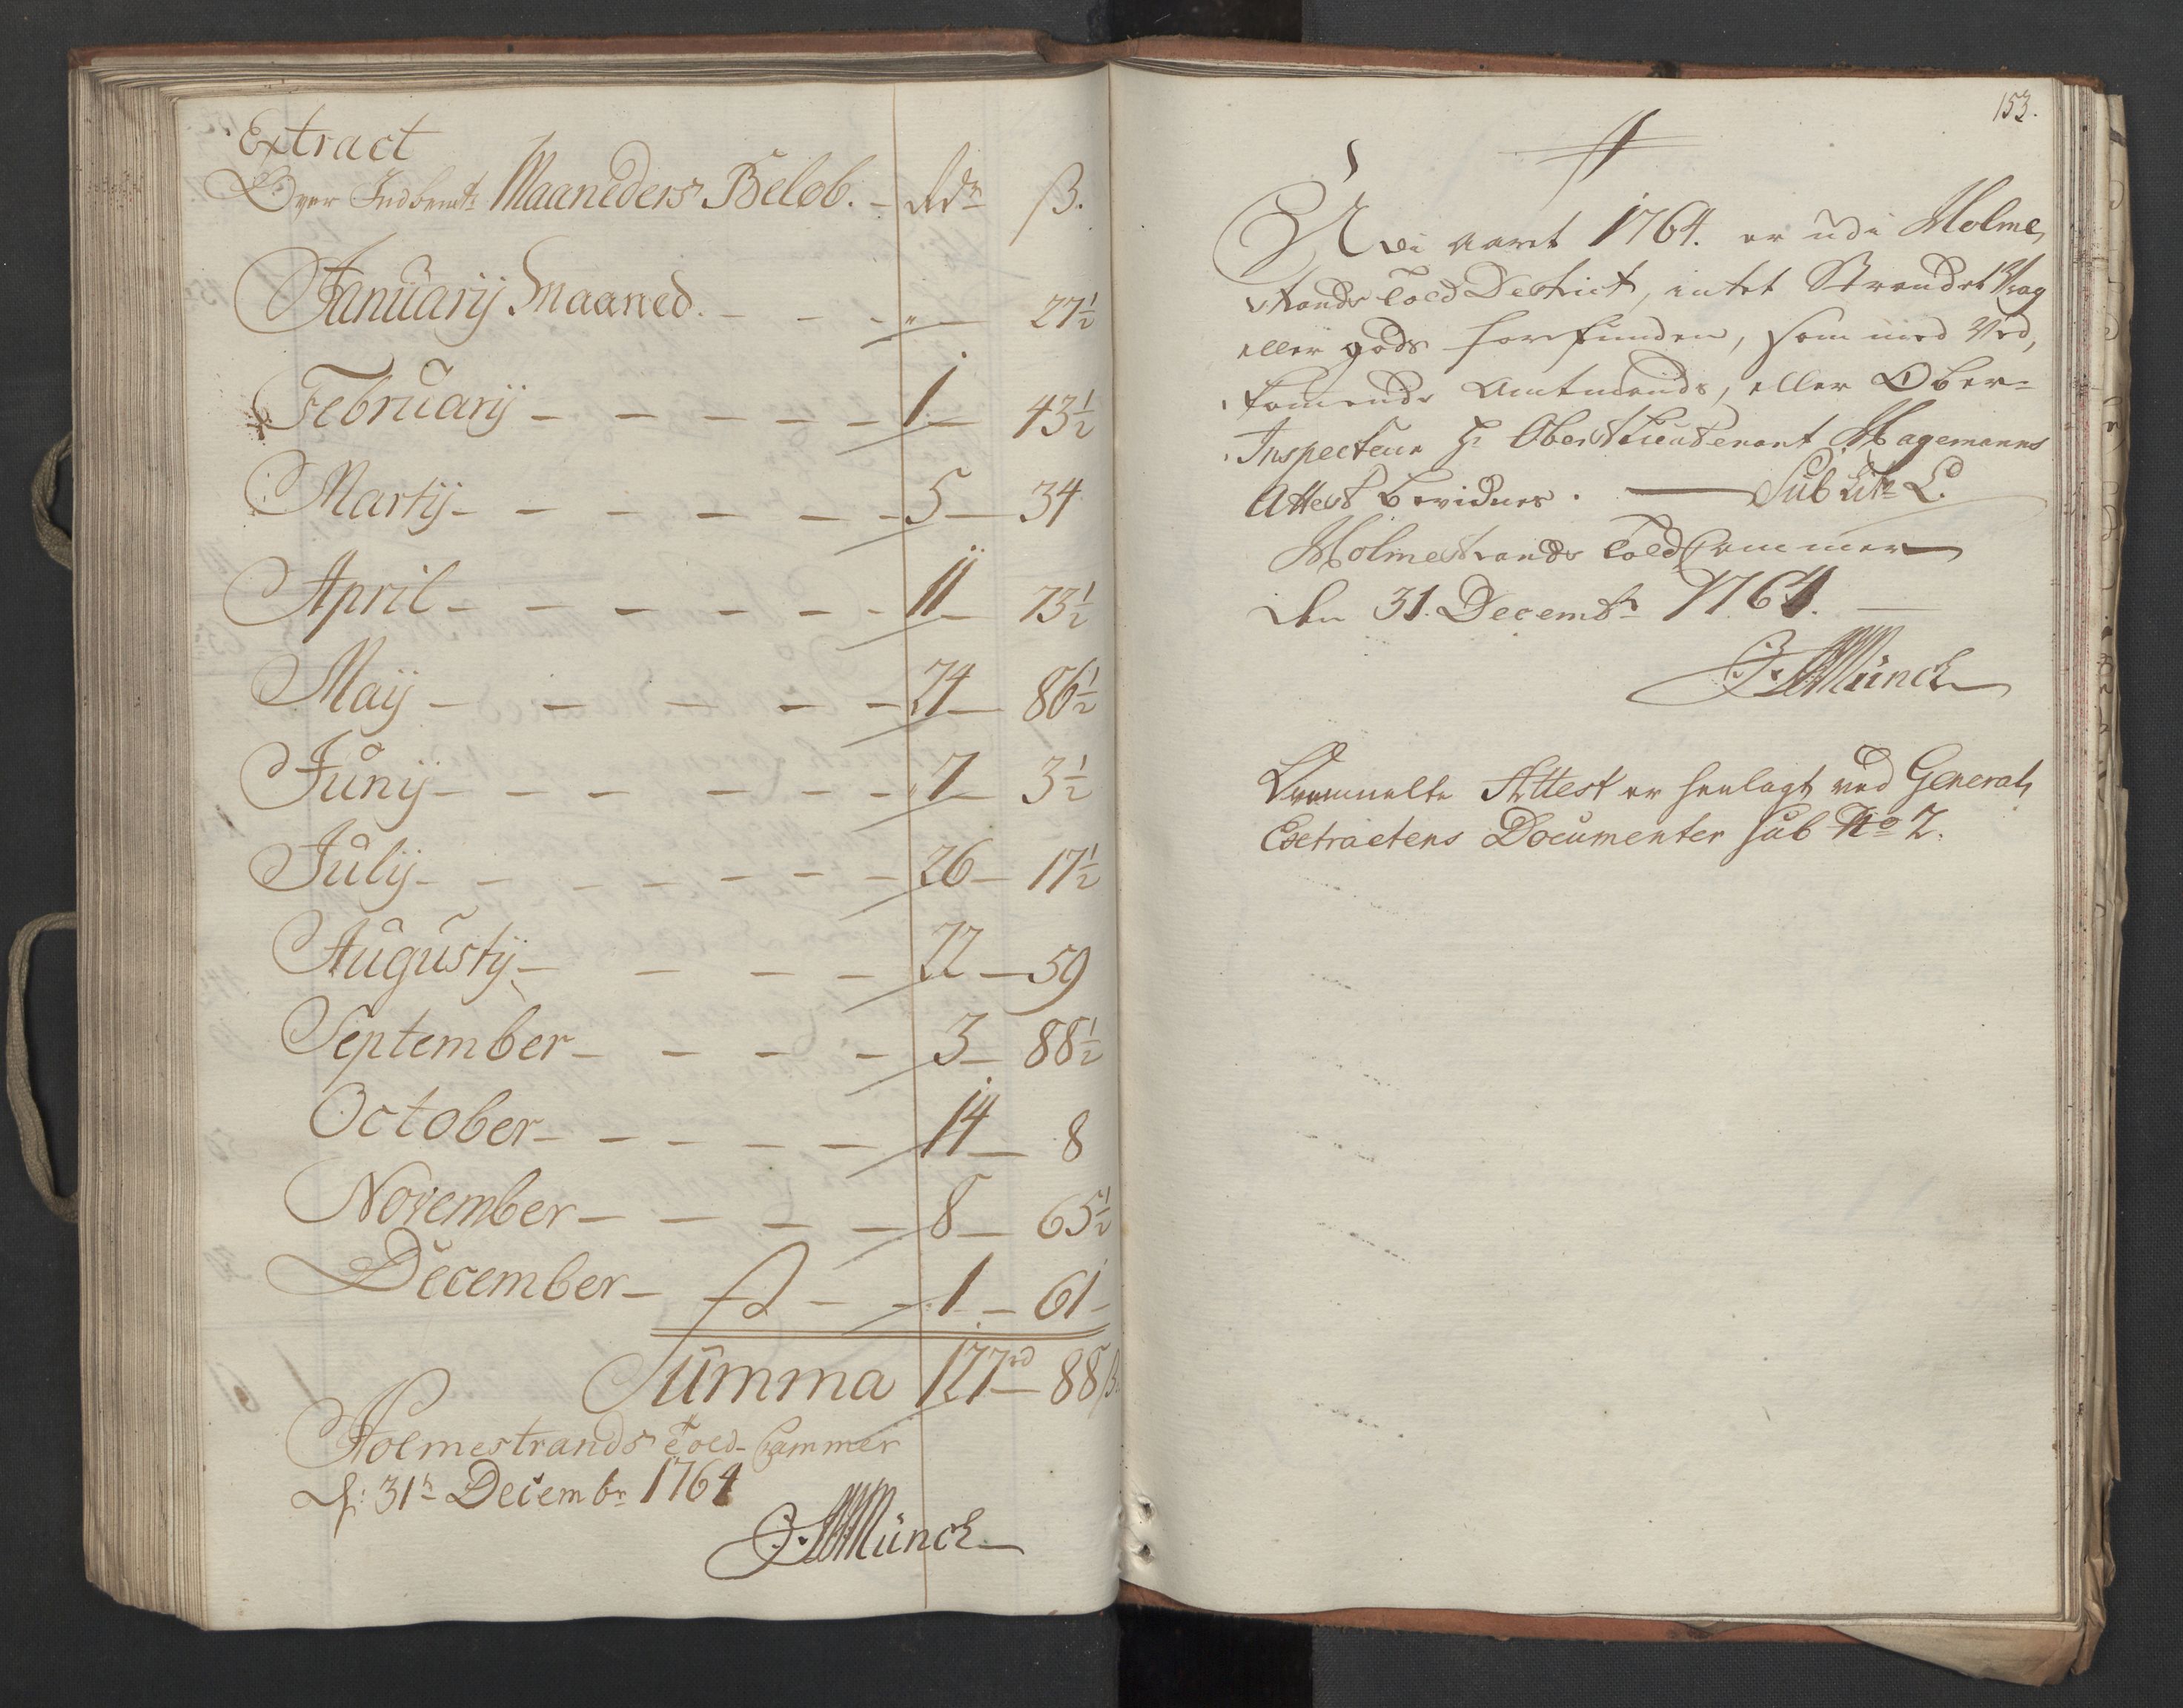 Extract
Over Indbemte Maaneders Beløb. - Rdr ß.
Januarij Maaned. - - - " - 27½
Februarij - - - - - 1 - 43½
Martij - - - - - - 5 - 34
April - - - - - - 11 - 73½
Maij - - - - - 24 - 86½
Junij - - - - - - 7 - 3½
Julij - - - - - - - 26 - 17½
Augustij - - - - 22 - 59
September - - - - 3 - 88½
October - - - - - 14 - 8
November - - - - 8 - 65½
December - - - - 1 - 61 -
Summa 127rd - 88ß
Holmestrands Told-Cammer
d: 31te Decembr 1764
Münch
153.
Udi aaret 1764. er udi Holme,
strands Told District, intet Strandet Vrag
eller gods forefunden, som med Ved,
kommende Amtmands, eller Ober-
Inspecteur Hr Oberstlieutenant Hagemanns
Attest bevidnes. — Sub Litr. L.
Holmestrands Told Cammer
den 31. Decembr 1764. —
Münch
Ommelte Attest er henlagt ved General,
Extractens Documenter sub No 2.